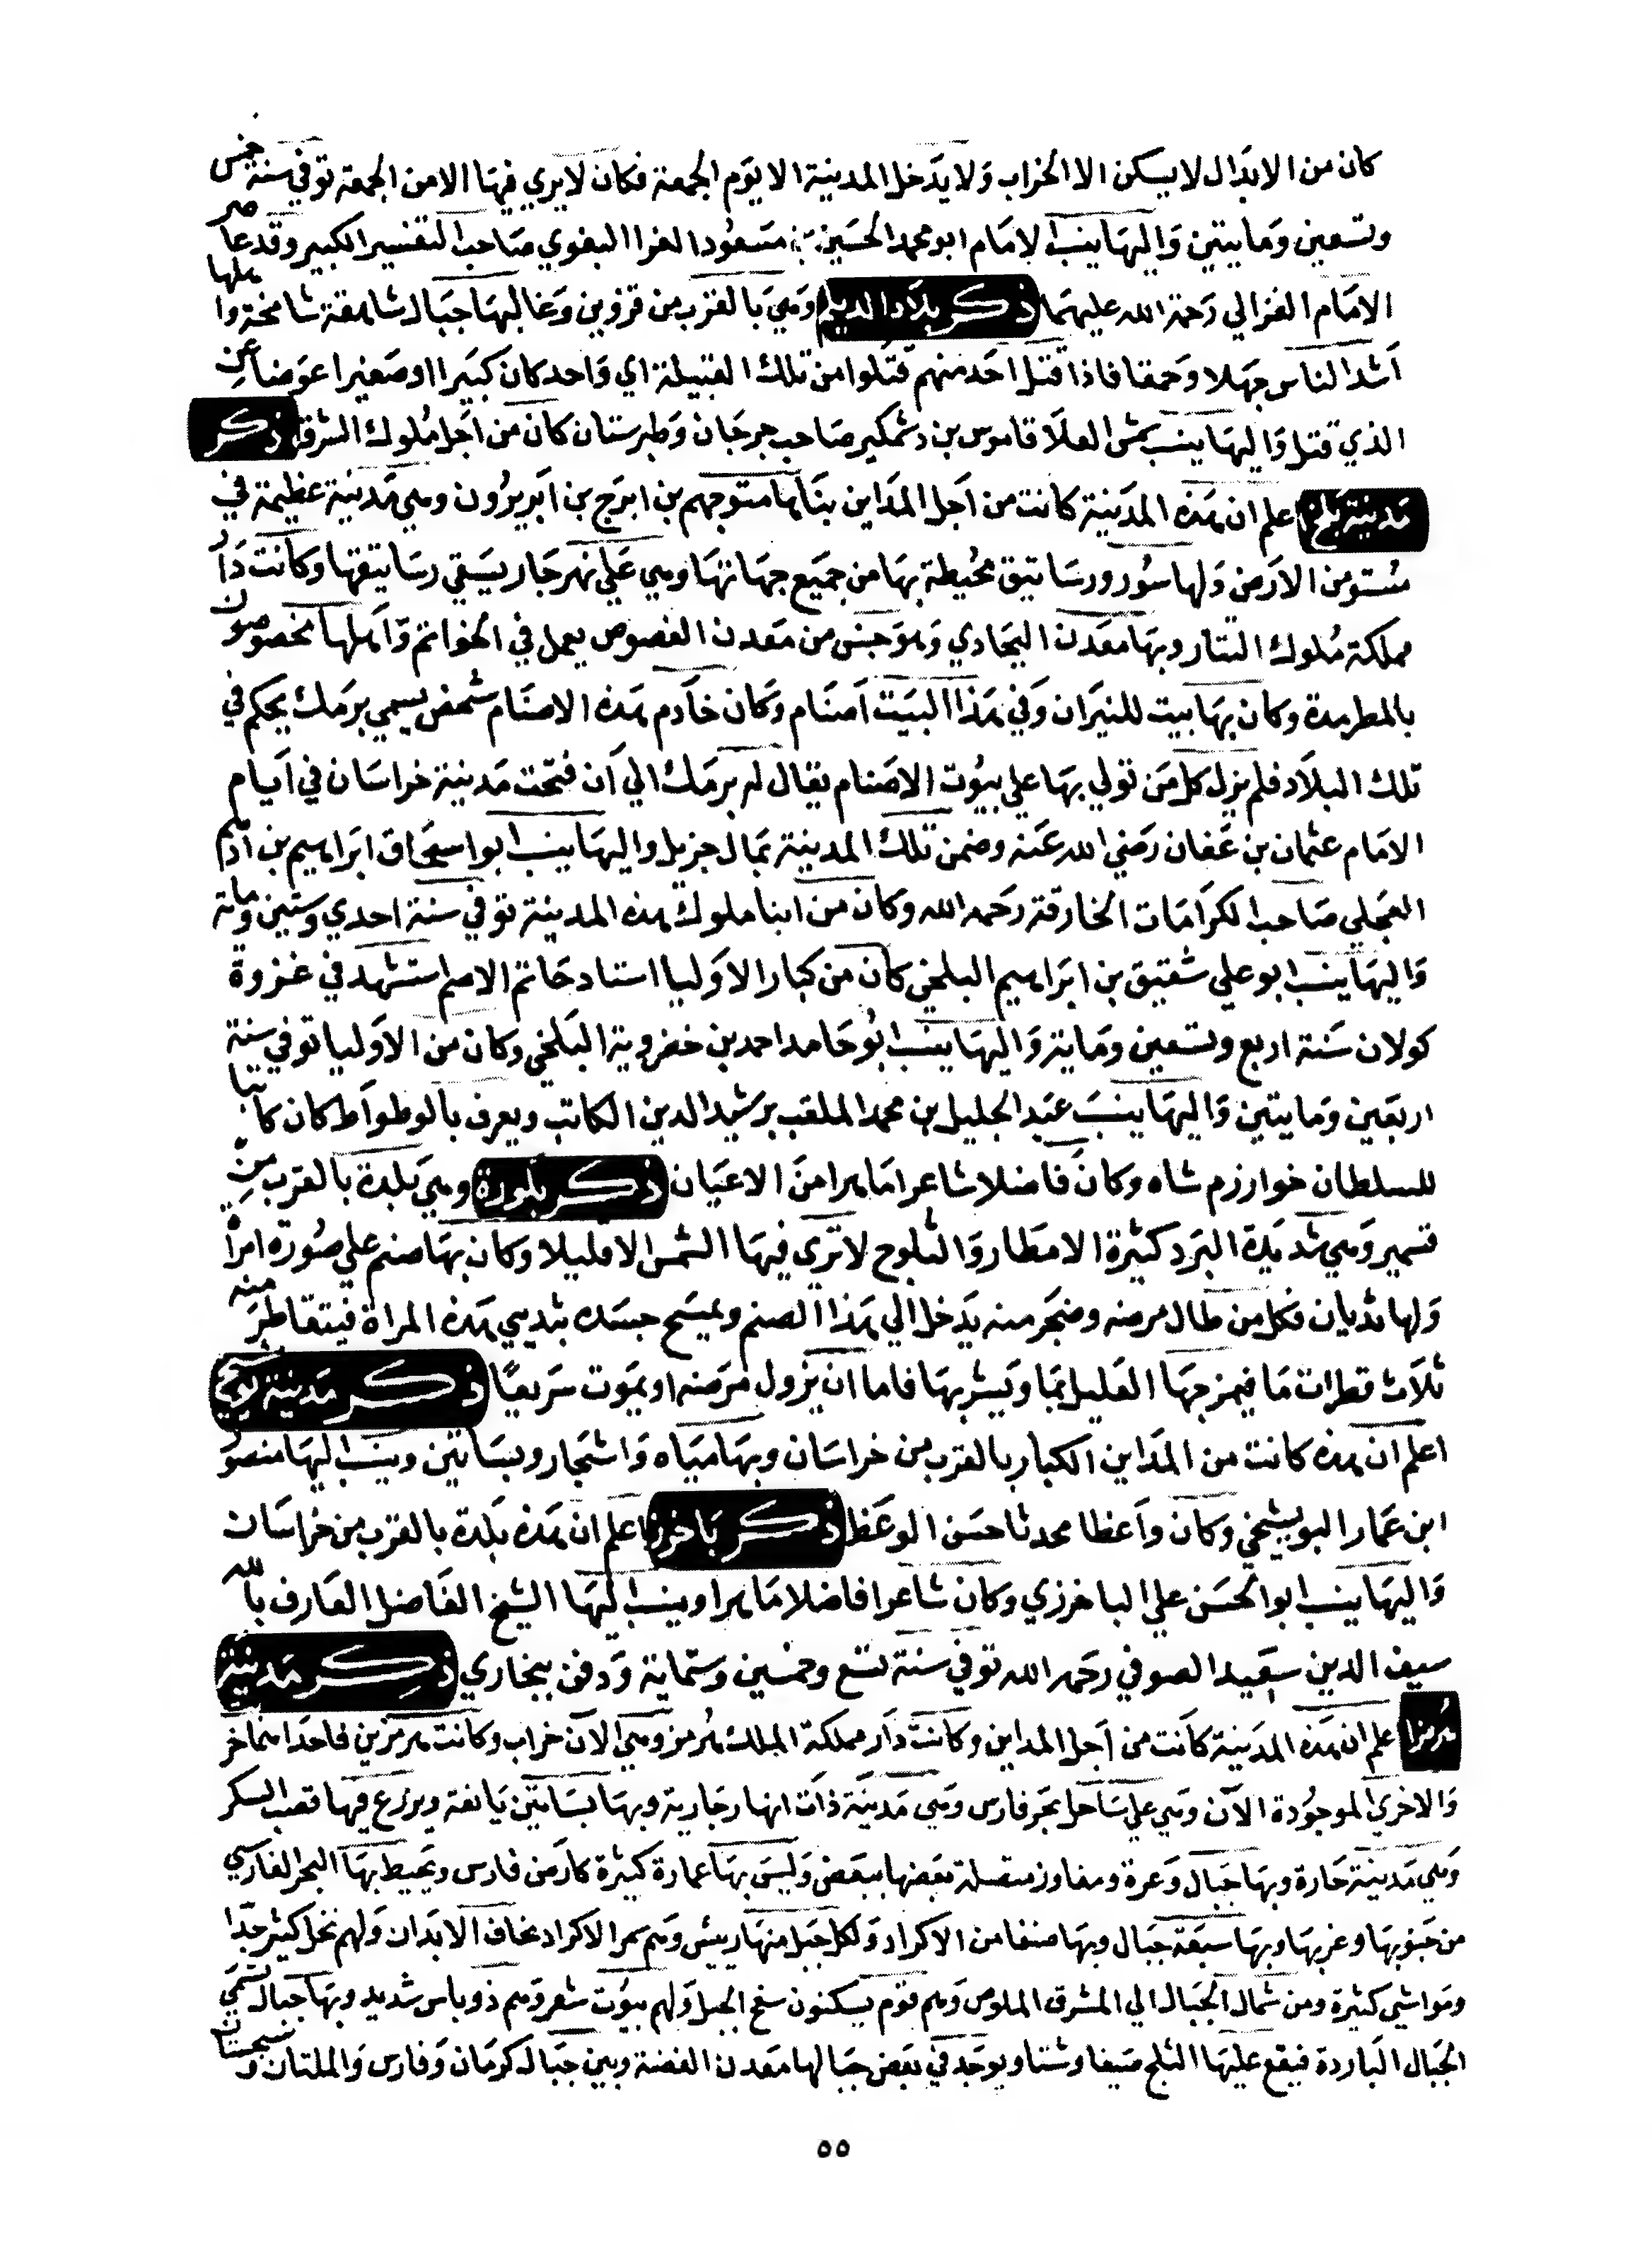 كان من الابدال لا يسكن الا الخراب ولا يدخل المدينة الا يوم الجمعة فكان لا يري فيها الا من الجمعة توفي سنة خمس
وتسعين ومايتين واليها ينسب الامام ابو محمد الحسين بن مسعود الفرا البغوي صاحب التفسير الكبير وقد عاصر
الامام الغزالي رحمة الله عليهما ذكر بلاد الديلم وهي بالقرب من قزوين وغالبها جبال شاهقة شامخة واهلها
اشد الناس جهلا وحمقا فاذا قتل احد منهم قتلوا من تلك القبيلة اي واحد كان كبيرا او صغيرا عوضا عن
الذي قتل واليها ينسب شمس العلا قاموس بن دشمكير صاحب جرجان وطبرستان كان من اجل ملوك الشرق ذكر
مدينة بلخ اعلم ان هذه المدينة كانت من اجل المداين بناها منوجهم بن ابرج بن ابريزون وهي مدينة عظيمة في
مستو من الارض ولها سور ورساتيق محيطة بها من جميع جهاتها وهي علي نهر جار يسقي رساتيقها وكانت دار
مملكة ملوك التتار وبها معدن البجادي وهو جنس من معدن الفصوص يعمل في الخواتم واهلها مخصوصون
بالمطرمدة وكان بها بيت للنيران وفي هذا البيت اصنام وكان خادم هذه الاصنام شخص يسمي برمك يحكم في
تلك البلاد فلم يزل كل من تولي بها علي بيوت الاصنام يقال له برمك الي ان فتحت مدينة خراسان في ايام
الامام عثمان بن عفان رضي الله عنه وضمن تلك المدينة بمال جزيل واليها ينسب ابو اسحاق ابراهيم بن ادهم
العجلي صاحب الكرامات الخارقة رحمه الله وكان من ابنا ملوك هذه المدينة توفي سنة احدي وستين وماية
واليها ينسب ابو علي شقيق بن ابراهيم البلخي كان من كبار الاوليا استاد حاتم الاصم استشهد في غزوة
كولان سنة اربع وتسعين وماية واليها ينسب ابو حامد احمد بن خضروية البلخي وكان من الاوليا توفي سنة
اربعين ومايتين واليها ينسب عبد الجليل بن محمد الملقب برشيد الدين الكاتب ويعرف بالوطواط كان كاتبا
للسلطان خوارزم شاه وكان فاضلا شاعرا ماهرا من الاعيان ذكر بلورة وهي بلدة بالقرب من
قسمير وهي شديدة البرد كثيرة الامطار والثلوج لا تري فيها الشمس الا قليلا وكان بها صنم علي صورة امراة
ولها ثديان فكل من طال مرضه وضجر منه يدخل الي هذا الصنم ويمسح جسده بثديي هذه المراة فيتقاطر منه
ثلاث قطرات ما فيمزجها العليل بما ويشربها فاما ان يزول مرضه او يموت سريعا ذكر مدينة
اعلم ان هذه كانت من المداين الكبار بالقرب من خراسان وبها مياه واشجار وبساتين وينسب اليها منصور
ابن عمار البويشخي وكان واعظا محدثا حسن الوعظ ذكر باخرز اعلم ان هذه بلدة بالقرب من خراسان
واليها ينسب ابو الحسن علي الباخرزي وكان شاعرا فاضلا ماهرا وينسب اليها الشيخ الفاضل العارف بالله
سيف الدين سعيد الصوفي رحمه الله توفي سنة تسع وخمسين وستماية ودفن ببخاري ذكر مدينة
هرمز اعلم ان هذه المدينة كانت من اجل المداين وكانت دار مملكة الملك هرمز وهي الان خراب وكانت هرمزين فاحداهما خر
والاخري الموجودة الان وهي علي ساحل بحر فارس وهي مدينة ذات انهار جارية وبها بساتين يانعة ويزرع فيها قصب السكر
وهي مدينة حارة وبها جبال وعرة ومفاوز متصلة بعضها ببعض وليس بها عمارة كثيرة كارض فارس ويحيط بها البحر الفارسي
من جنوبها وغربها وبها سبعة جبال وبها صنفا من الاكراد ولكل جبل منها رييس وهم سمر الاكراد نحاف الابدان ولهم نخل كثير جدا
ومواشي كثيرة ومن شمال الجبال الي المشرق الملوص وهم قوم يسكنون سفح الجبل ولهم بيوت شعر وهم ذو باس شديد وبها جبال تسمي
الجبال الباردة فيقع عليها الثلج صيفا وشتا ويوجد في بعض جبالها معدن الفضة وبين جبال كرمان وفارس والملتان وسجستان
٥٥